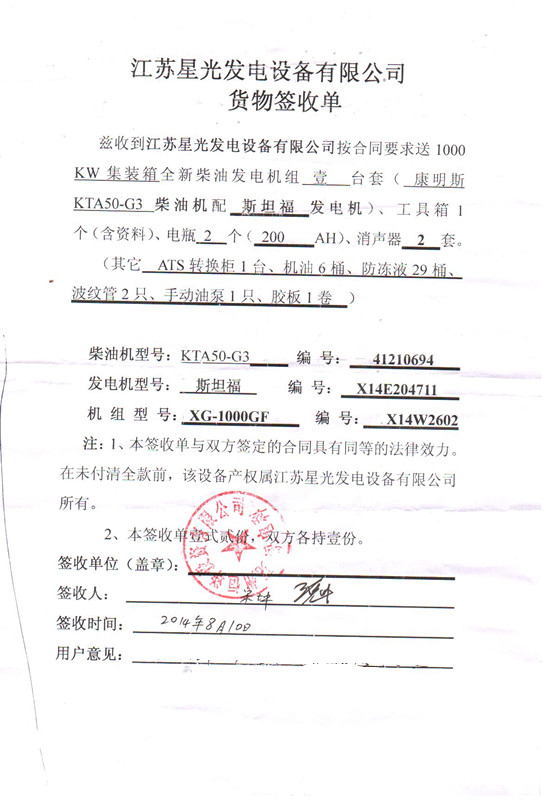 江苏星光发电设备有限公司
货物签收单
兹收到江苏星光发电设备有限公司按合同要求送 1000
KW 集装箱全新柴油发电机组 壹 台套（ 康明斯
KTA50-G3 柴油机配 斯坦福 发电机）、工具箱 1
个（含资料）、电瓶 2 个（ 200 AH）、消声器 2 套。
（其它 ATS 转换柜 1 台、机油 6 桶、防冻液 29 桶、
波纹管 2 只、手动油泵 1 只、胶板 1 卷 ）
柴油机型号：KTA50-G3 编 号： 41210694
发电机型号： 斯坦福 编 号： X14E204711
机 组 型 号：XG-1000GF 编 号： X14W2602
注：1、本签收单与双方签定的合同具有同等的法律效力。
在未付清全款前，该设备产权属江苏星光发电设备有限公司
所有。
2、本签收单壹式贰份，双方各持壹份。
签收单位（盖章）：
签收人：
签收时间： 2014年8月10日
用户意见：
有限公司